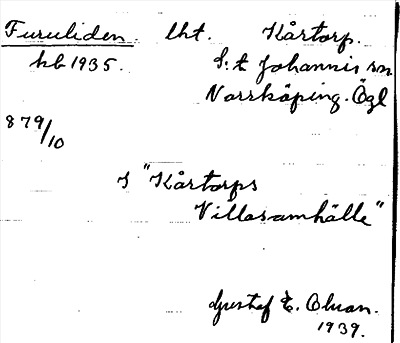 Furuliden. lht. Kårtorp.
kb 1935. S:t Johannis sn
Norrköping. Ögl
879/10
I "Kårtorps
Villasamhälle"
Gustaf E. Olson.
1939.